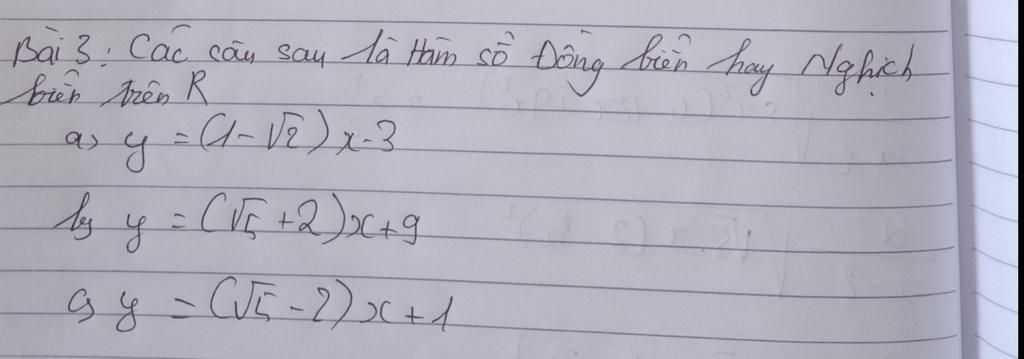 Bài 3: Các câu sau là Hàm số Đồng biến hay Nghịch
biến trên R
a) y = (1-√2)x-3
b) y = (√5+2)x+9
c) y = (√5-2)x+1